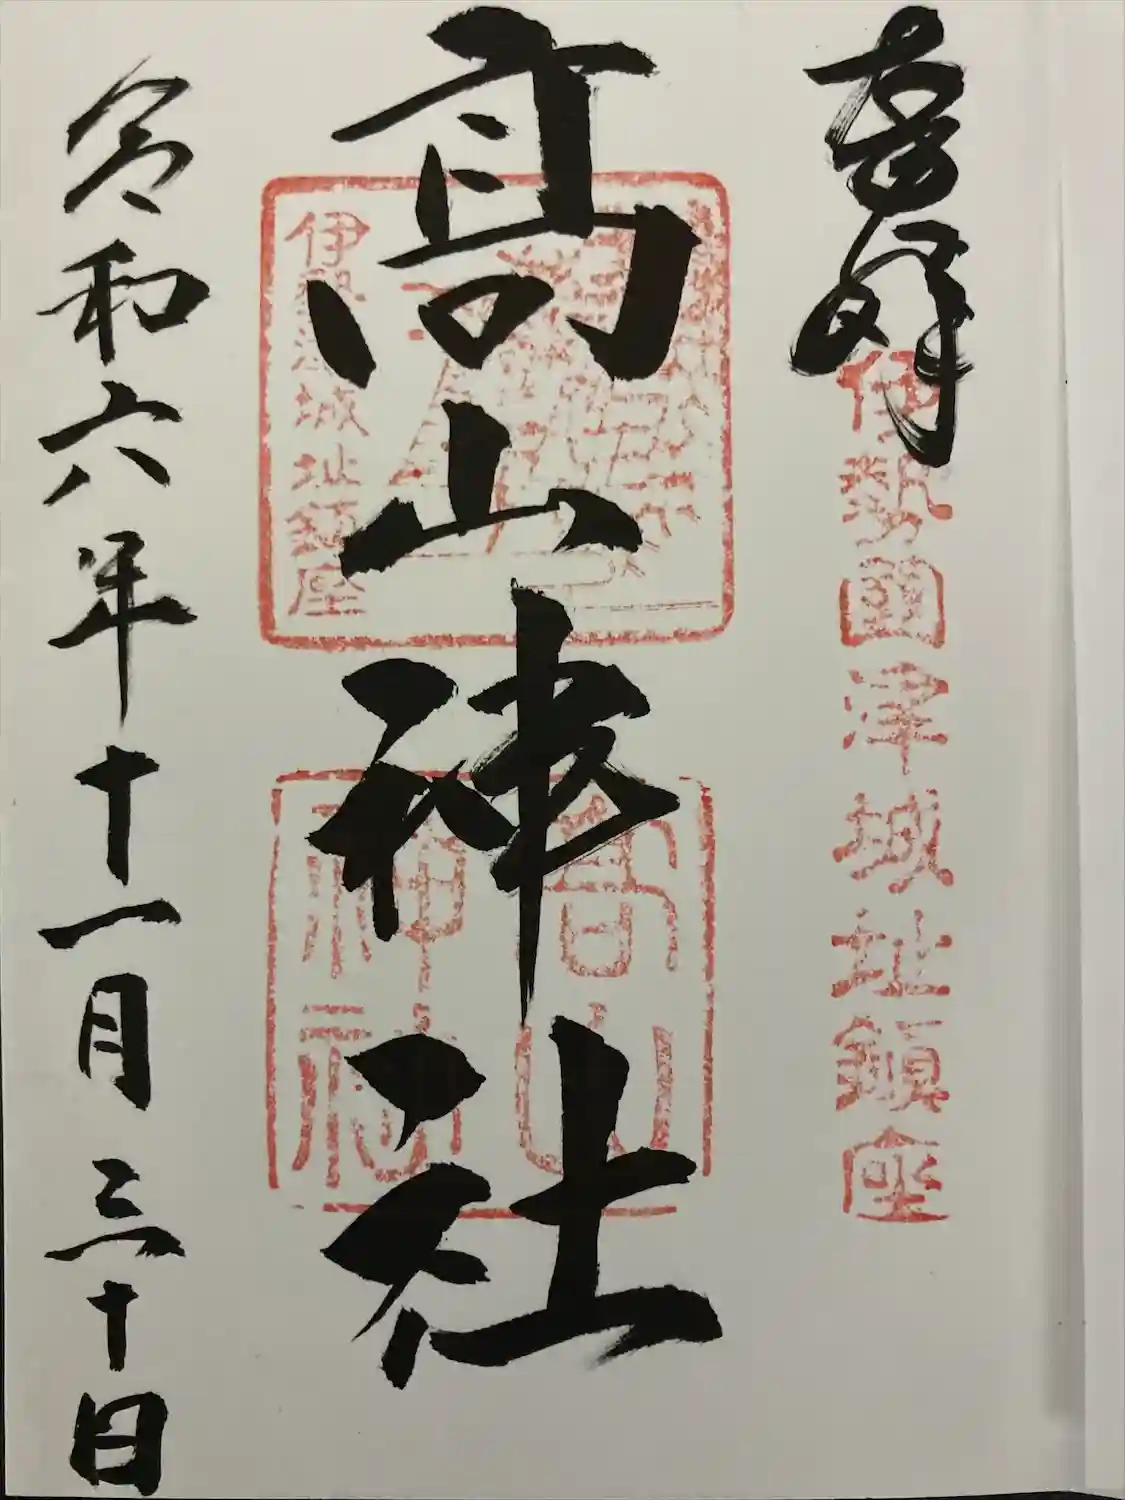 奉拝
伊勢國津城址鎮座
高山神社
伊勢津城址鎮座
高山
神社
令和六年十一月三十日